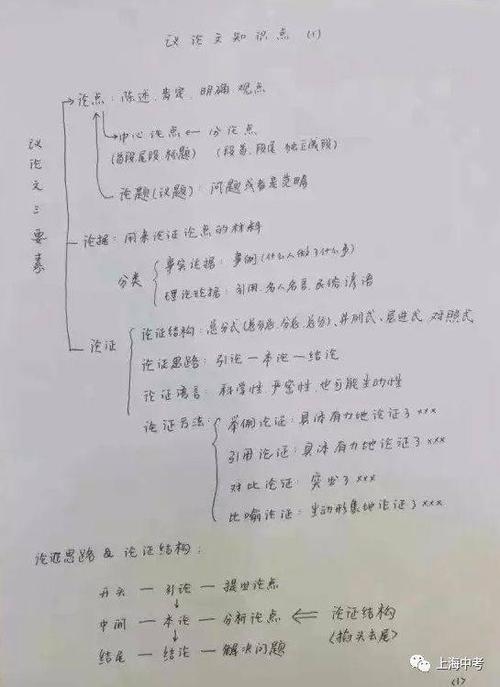 议论文知识点 (1)
议论文三要素
论点：陈述、肯定、明确、观点
中心论点 ← 分论点
(首段、尾段、标题) (段首、段尾、独立成段)
论题(议题)：问题或者是范畴
论据：用来论证论点的材料
分类
事实论据：事例(什么人做了什么事)
理论论据：引用、名人名言、民俗谚语
论证
论证结构：总分式(总分总、分总、总分)、并列式、层进式、对照式
论证思路：引论—本论—结论
论证语言：科学性、严密性、也可能生动性
论证方法：
举例论证：具体有力地论证了xxx
引用论证：具体有力地论证了xxx
对比论证：突出了xxx
比喻论证：生动形象地论证了xxx
论证思路 & 论证结构：
开头 — 引论 — 提出论点
中间 — 本论 — 分析论点 ⇐ 论证结构
(掐头去尾)
结尾 — 结论 — 解决问题
上海中考
(1)